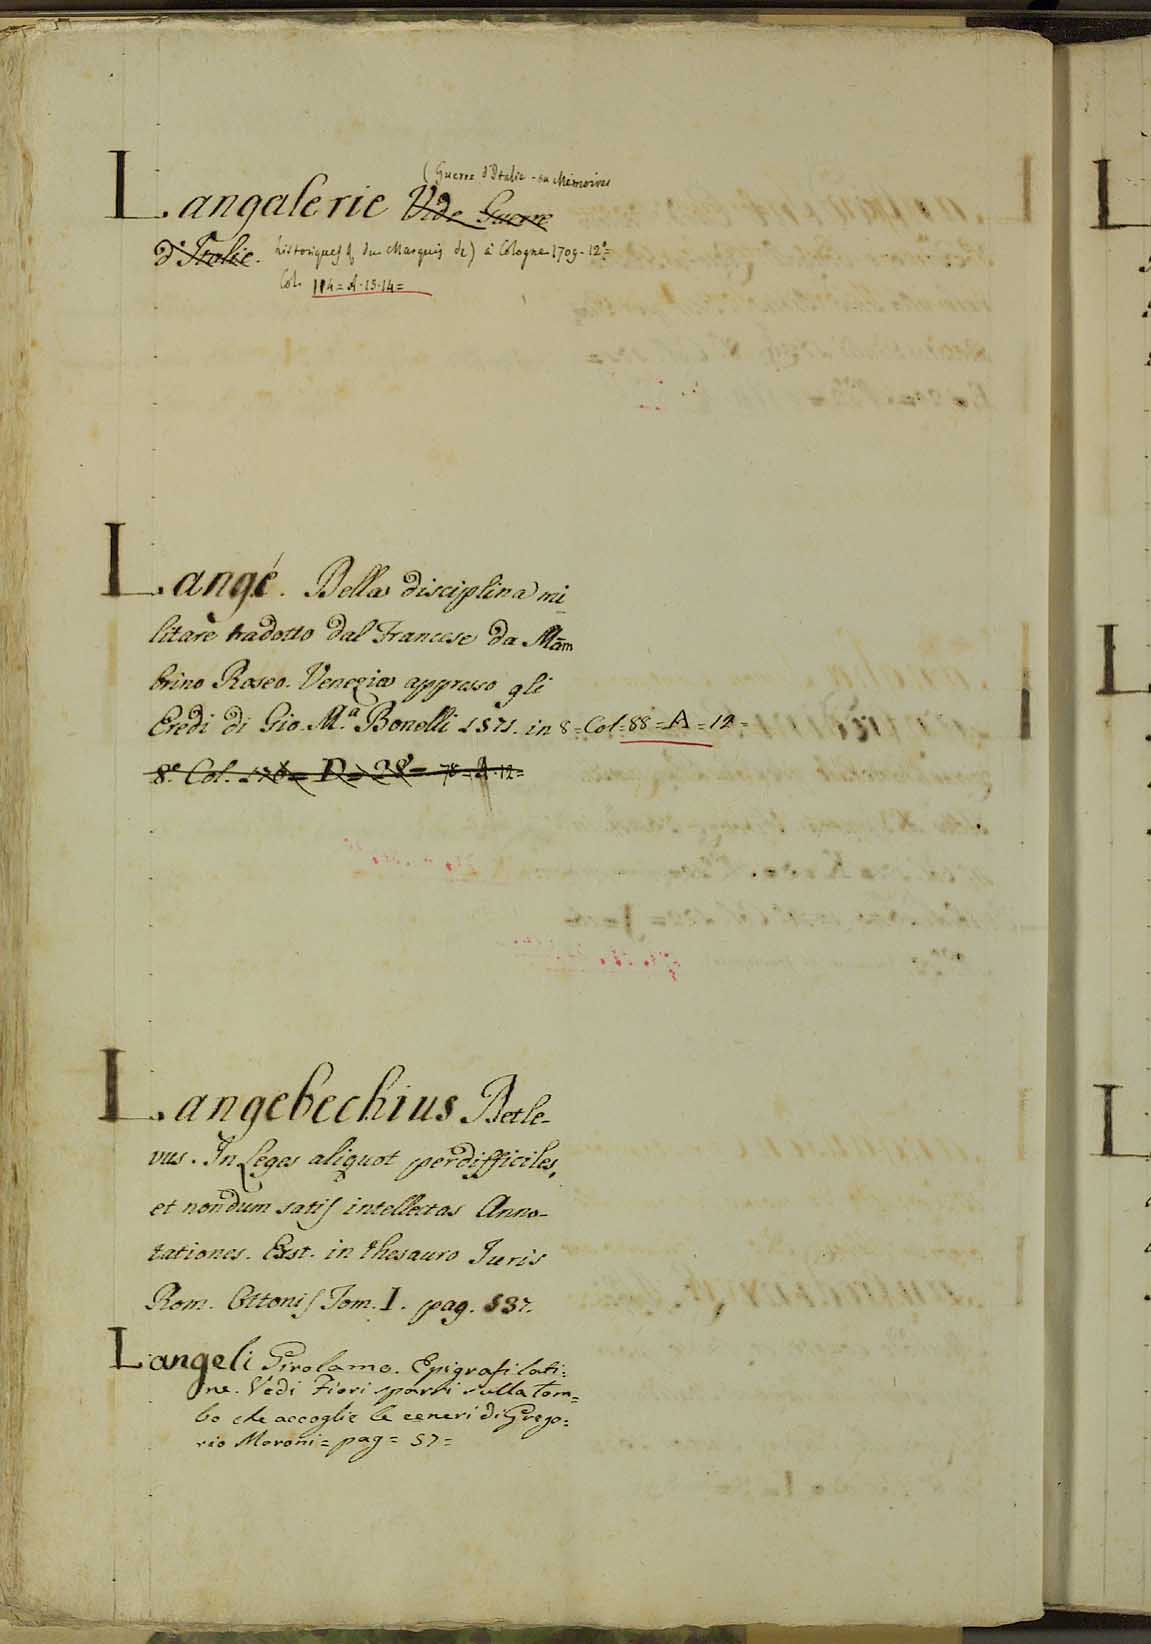 (Guerre d'Italie - ou Mémoires
Langalerie Vide Guerre
d'Italie. historiques du Marquis de) à Cologne 1709 - 12°=
Col. 114 = A · 15 · 14 =
Langé. Bella disciplina mi
litare tradotto dal Francese da Mam
brino Roseo. Venezia appresso gli
Eredi di Gio. M.a Bonelli 1571. in 8 = Col = 88 = A = 12 =
8.° Col. 176 = D = 28 = 78 = A · 12 =
Langebechius Betle-
vus. In Leges aliquot perdifficiles,
et nondum satis intellectas Anno-
tationes. Exst. in thesauro Juris
Rom. Ottonis Tom. I. pag. 537.
Langeli Girolamo. Epigrafi lati=
ne. Vedi Fiori sparsi sulla tom=
ba che accoglie le ceneri di Grego=
rio Moroni = pag = 57 =